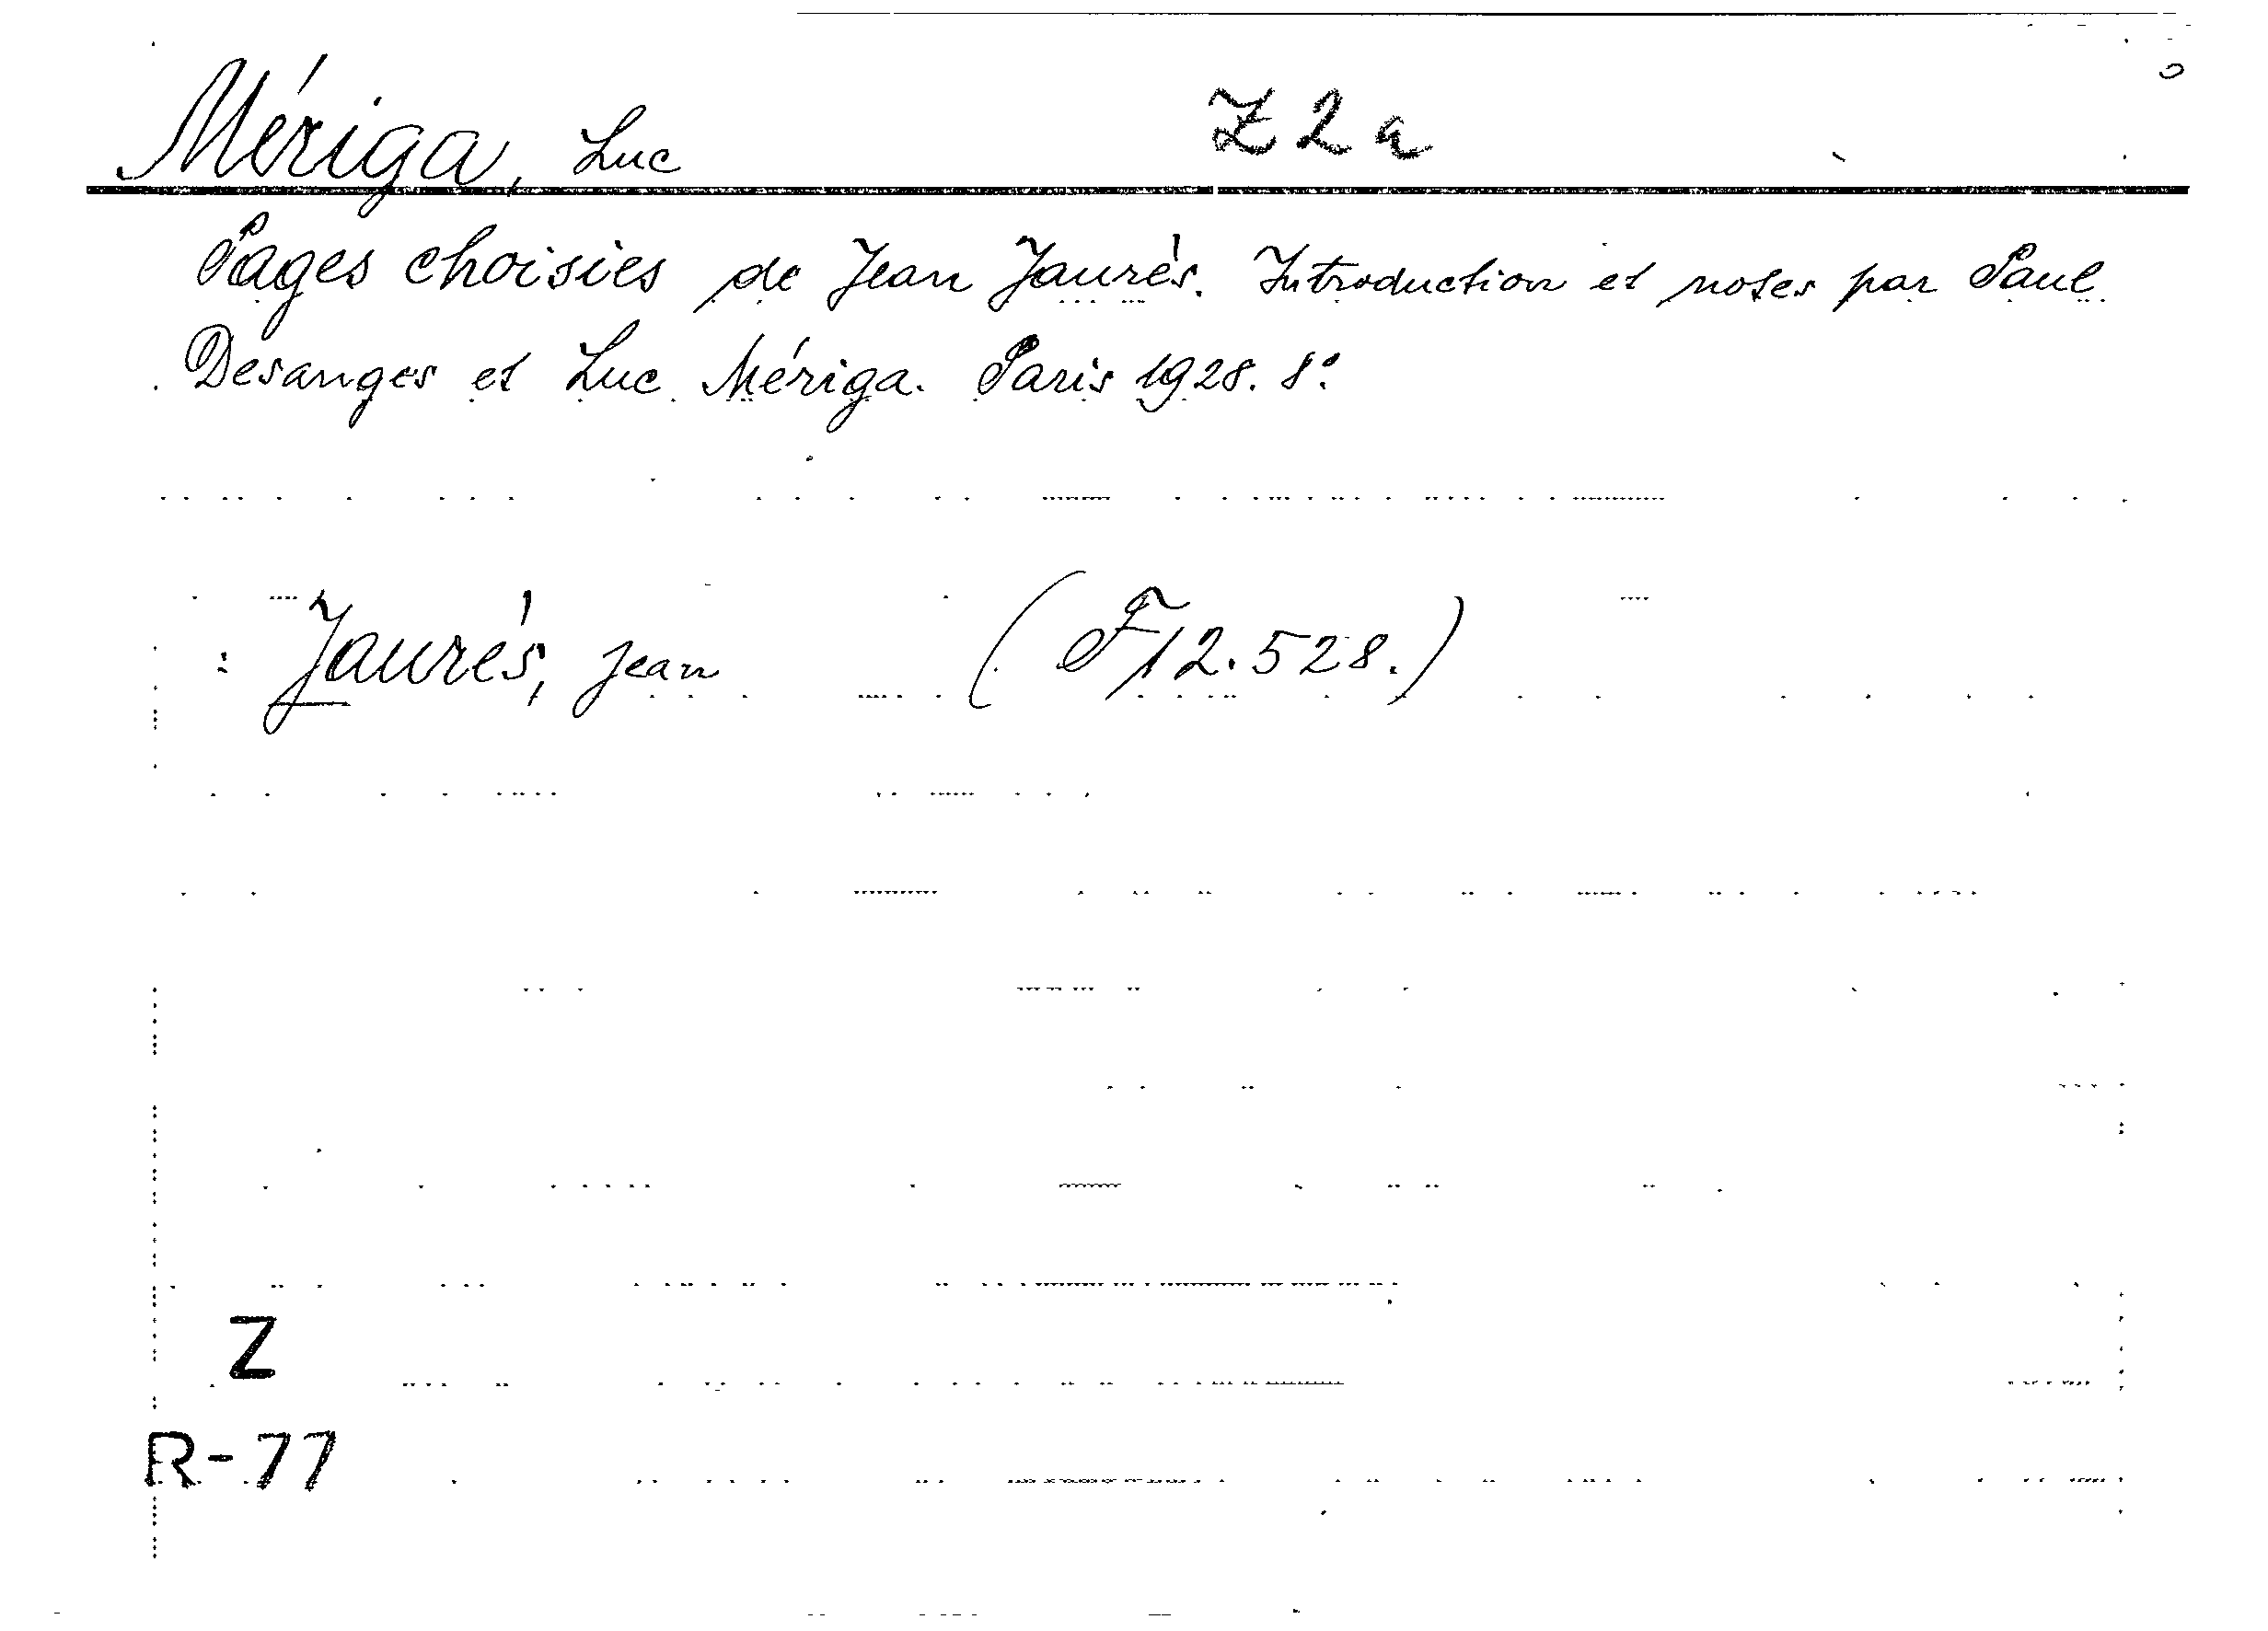 Mériga, Luc Z2a
Pages choisies de Jean Jaurès. Introduction et notes par Paul
Desanges et Luc Mériga. Paris 1928. 8°.
: Jaurès, Jean (F12.528.)
Z
R-77